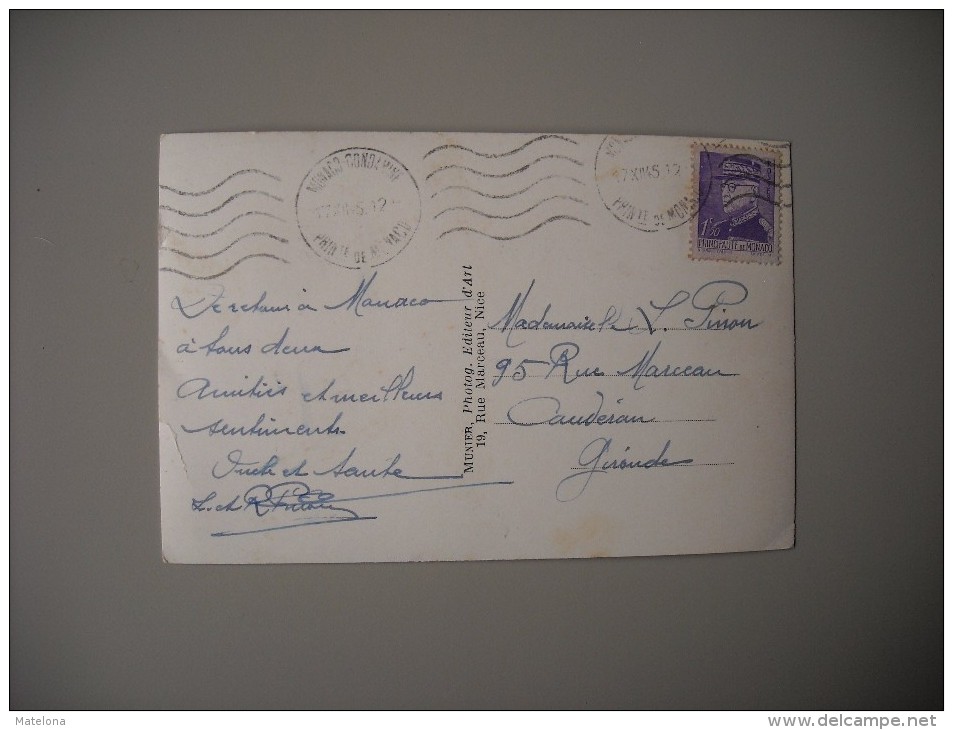 MONACO-CONDAMINE
17 XII 45 12
PRINTÉ DE MONACO
17 XII 45 12
PRINTÉ DE MONACO
1F50
PRINCIPAUTÉ DE MONACO
De retour à Monaco
à tous deux
Amitiés et meilleurs
sentiments
Oncle et tante
L. et R Pinon
MUNIER, Photog. Editeur d'Art
19, Rue Marceau, Nice
Mademoiselle L. Pinon
95 Rue Marceau
Caudéran
Gironde
Matelona
www.delcampe.net